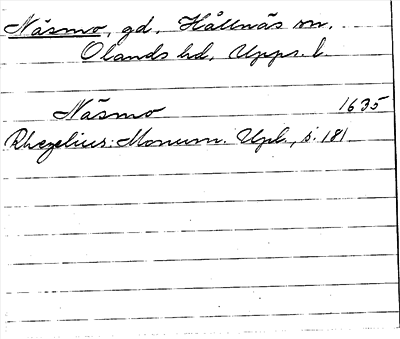 Näsmo, gd, Hållnäs sn.
Olands hd, Upps. l.
Näsmo 1635
Rhezelius: Monum. Upl., s. 181